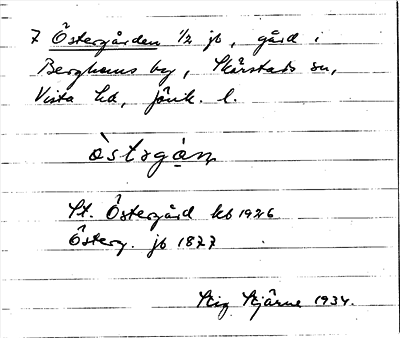 7 Östergården 1/2 jb, gård i
Berghems by, Skärstads sn,
Vista hd, Jönk. l.
östrgån
St. Östergård kb 1926
Österg. jb 1877
Stig Stjärne 1934.